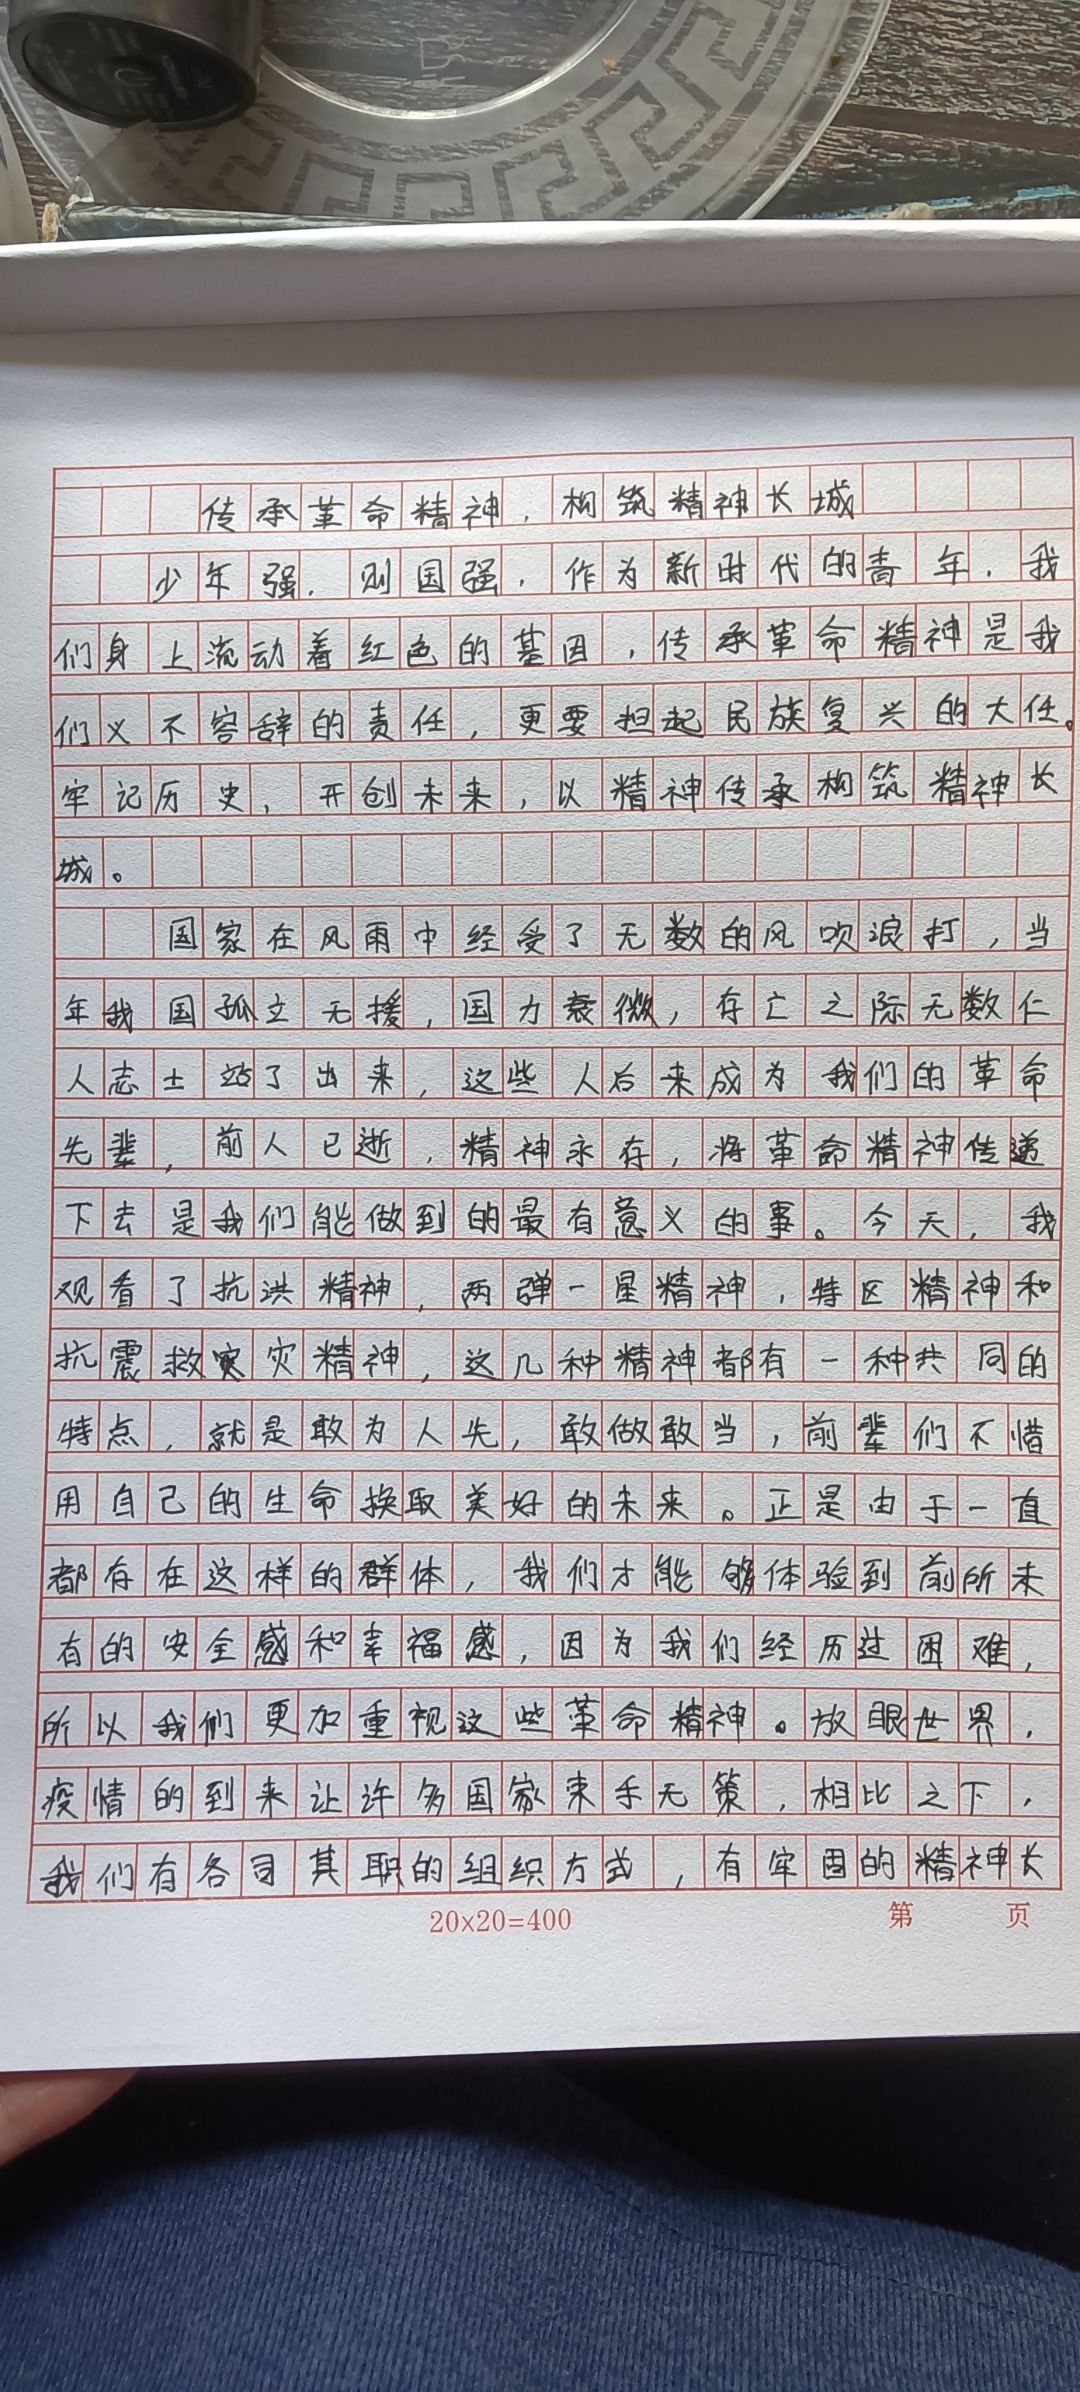 传承革命精神，构筑精神长城
少年强，则国强，作为新时代的青年，我
们身上流动着红色的基因，传承革命精神是我
们义不容辞的责任，更要担起民族复兴的大任。
牢记历史，开创未来，以精神传承构筑精神长
城。
国家在风雨中经受了无数的风吹浪打，当
年我国孤立无援，国力衰微，存亡之际无数仁
人志士站了出来，这些人后来成为我们的革命
先辈，前人已逝，精神永存，将革命精神传递
下去是我们能做到的最有意义的事。今天，我
观看了抗洪精神，两弹一星精神，特区精神和
抗震救灾精神，这几种精神都有一种共同的
特点，就是敢为人先，敢做敢当，前辈们不惜
用自己的生命换取美好的未来。正是由于一直
都存在这样的群体，我们才能够体验到前所未
有的安全感和幸福感，因为我们经历过困难，
所以我们更加重视这些革命精神。放眼世界，
疫情的到来让许多国家束手无策，相比之下，
我们有各司其职的组织方式，有牢固的精神长
20×20=400
第 页